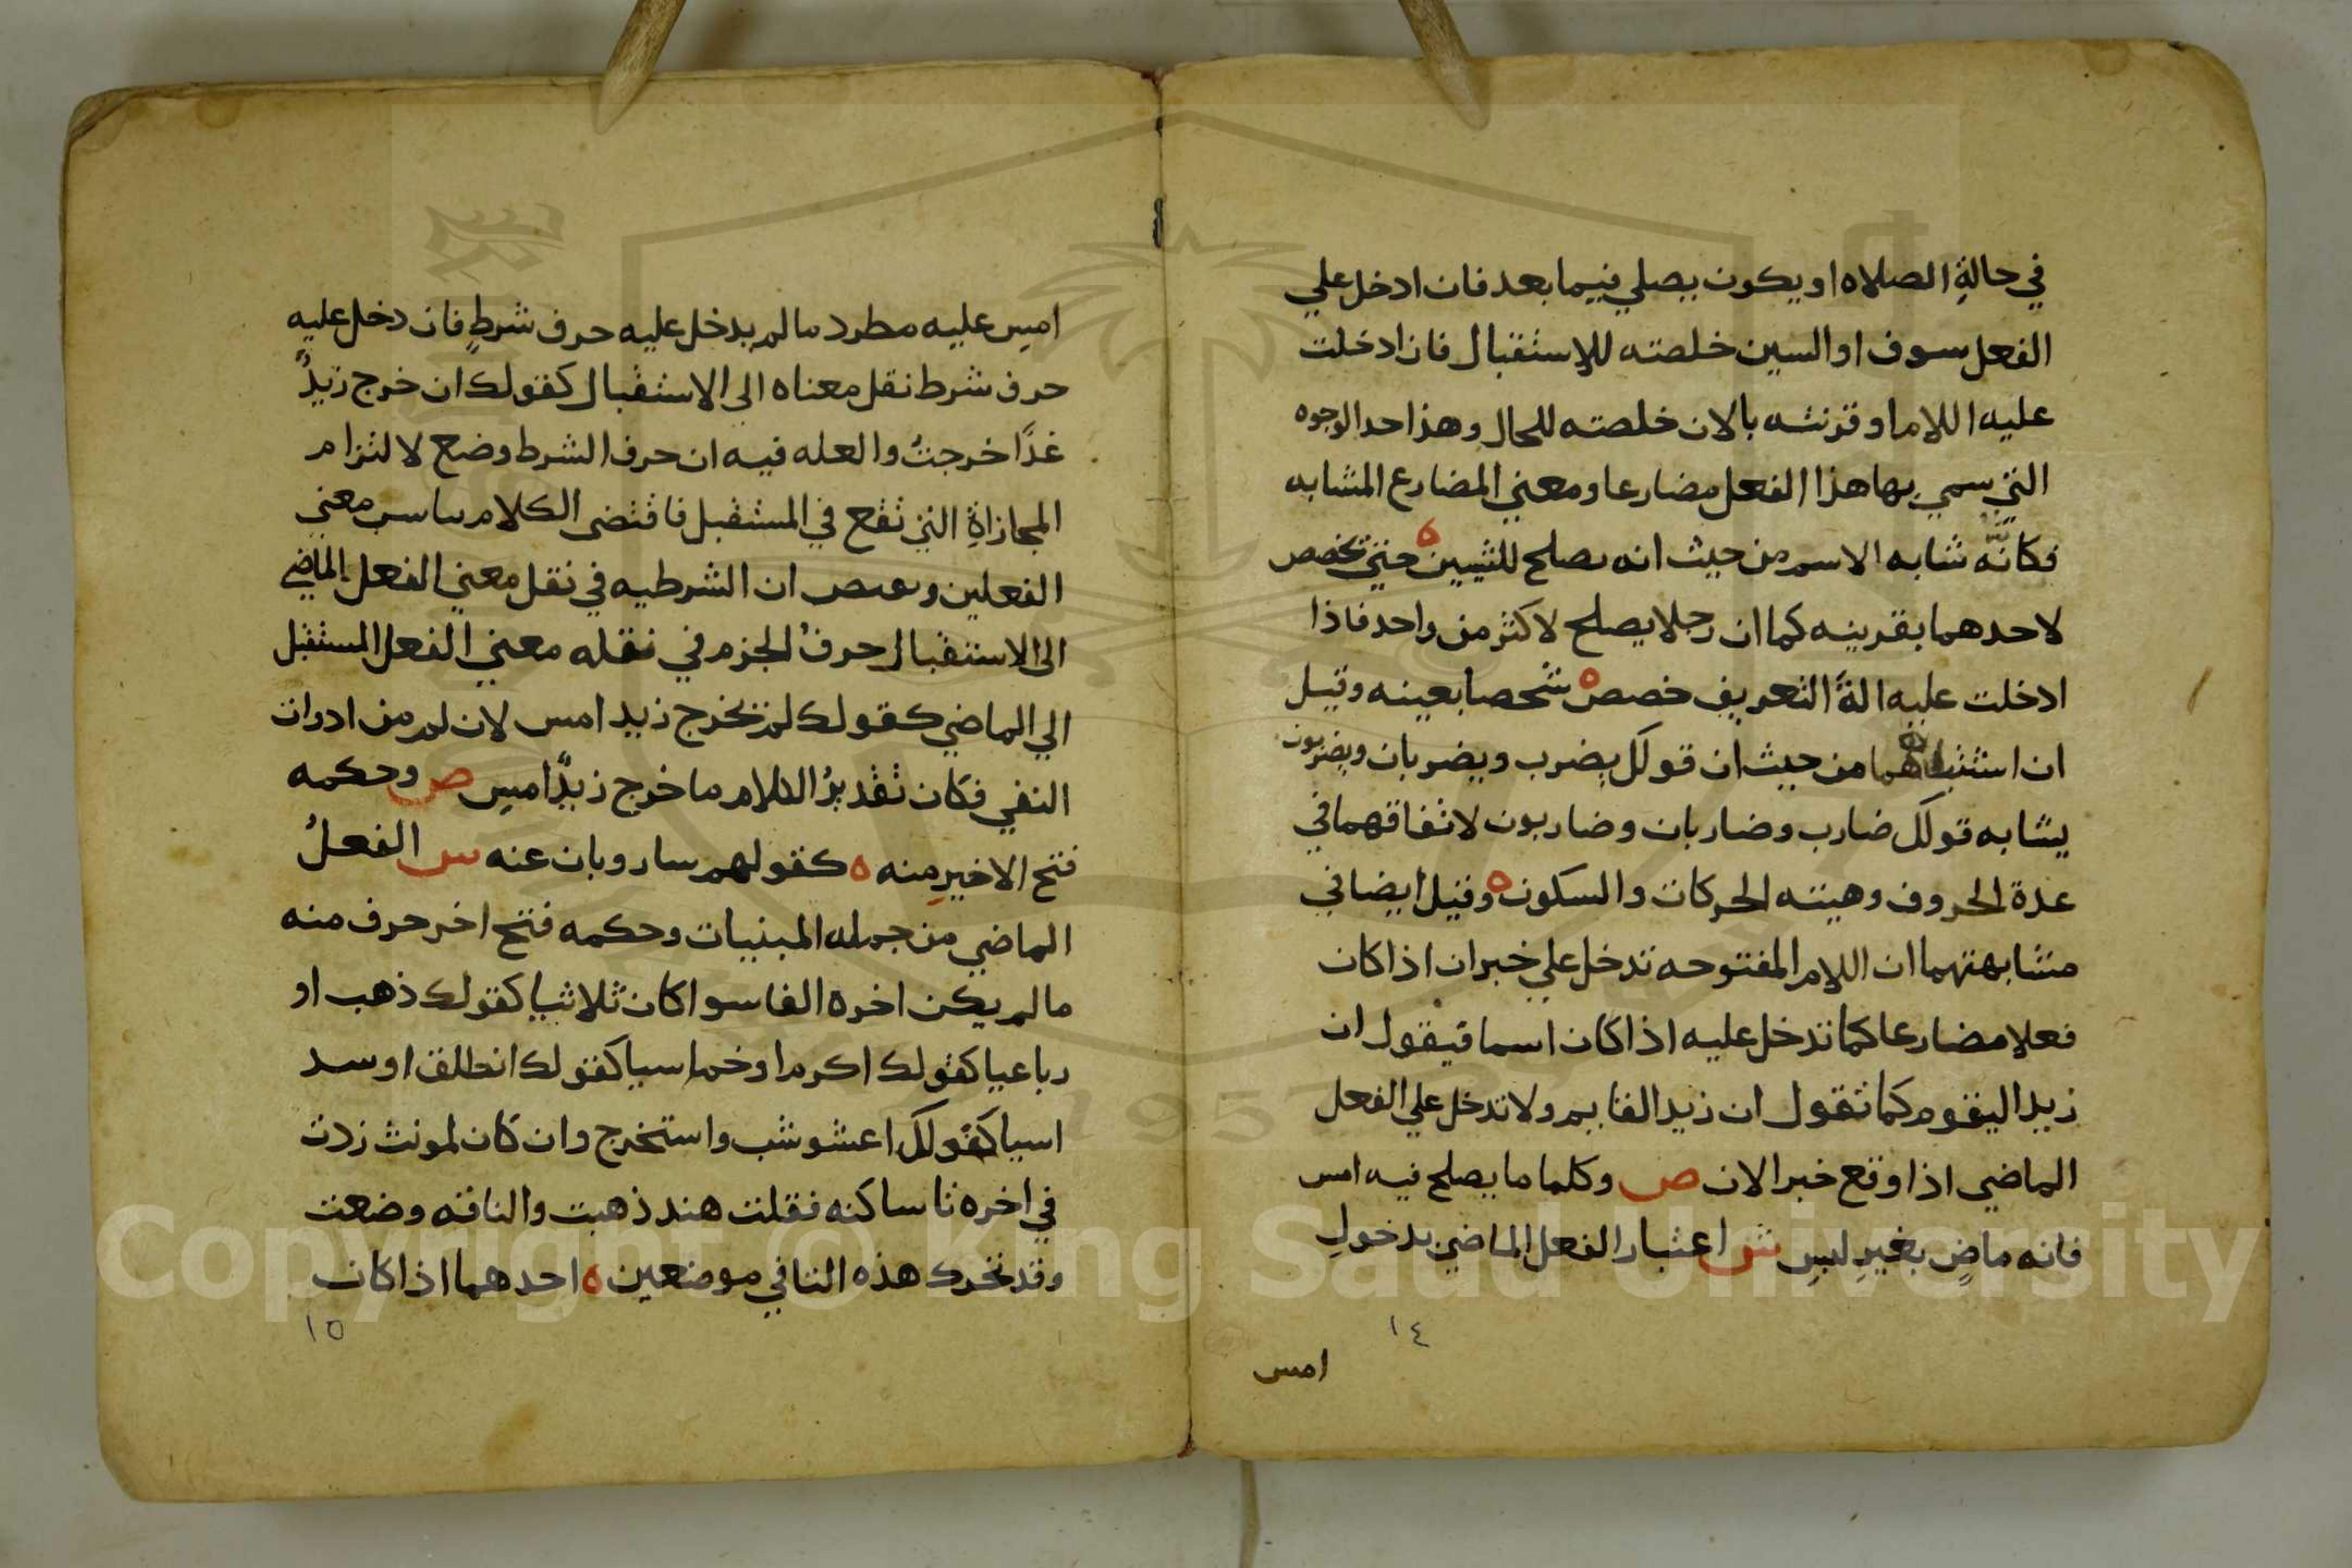 في حالةِ الصلاه او يكون يصلي فيما بعد فان ادخل علي
الفعل سوف او السين خلصته للاِستقبال فان ادخلت
عليه اللام او قرنته بالان خلصته للحال وهذا احد الوجوه
التي سمي بها هذا الفعل مضارعا ومعني المضارع المشابه
فكانَّه شابه الاسم من حيث انه يصلح للشيين ه حتي تخصص
لاحدهما بقرينه كما ان رجلا يصلح لاكثر من واحد فاذا
ادخلت عليه الةُ التعريف خصص ه شخصا بعينه وقيل
ان من حيث ان قولك يضرب ويضربان ويضربون
يشابه قولك ضارب وضاربان وضاربون لاتفاقهما في
عدة الحروف وهيته الحركات والسكون ه وقيل ايضا في
مشابهتهما ان اللام المفتوحه تدخل علي خبر ان اذا كان
فعلا مضارعا كما تدخل عليه اذا كان اسما فيقول ان
زيدا ليقوم كما تقول ان زيد القايم ولا تدخل علي الفعل
الماضي اذا وقع خبر الان ص وكلما ما يصلح فيه امس
فانه ماضٍ بغيرِ لبسِ ش اعتبار الفعل الماضي بدخولِ
١٤
امس
امسِ عليه مطرد ما لم يدخل عليه حرف شرطٍ فان دخل عليه
حرف شرط نقل معناه الي الاستقبال كقولك ان خرج زيدٌ
غدًا خرجتُ والعله فيه ان حرف الشرط وضع لالتزام
المجازاةِ التي تقع في المستقبل فاقتضى الكلام معني
الفعلين ان الشرطيه في نقل معني الفعل الماضي
الى الاستقبال حرفُ الجزم في نقله معني الفعل المستقبل
الي الماضي كقولك لم يخرج زيد امس لان لم من ادوات
النفي فكان تقديرُ الكلام ما خرج زيدٌ امسِ ص وحكمه
فتح الاخيرِ منه ه كقولهم سار وبان عنه س الفعلُ
الماضي من جمله المبنيات وحكمه فتح اخر حرف منه
ما لم يكن اخره الفا سوا كان ثلاثيا كقولك ذهب او
رباعيا كقولك اكرم او خماسيا كقولك انطلق او سد
اسيا كقولك اعشوشب واستخرج وان كان لمونث زدت
في اخره تا ساكنه فقلت هند ذهبت والناقه وضعت
وقد تحرك هذه التا في موضعين ه احدهما اذا كان
١٥
Copyright © King Saud University
1957